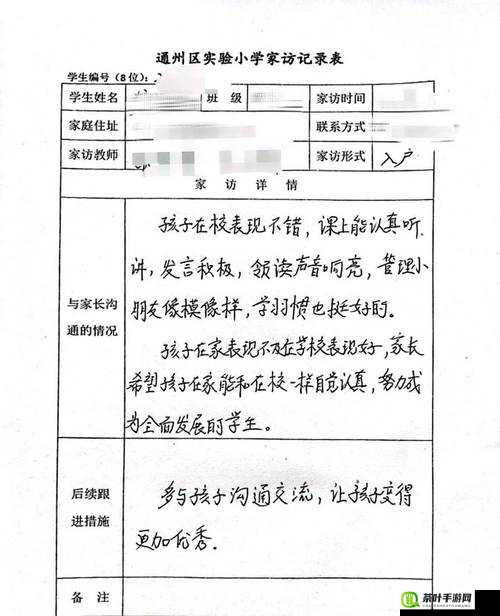 通州区实验小学家访记录表
学生编号（8位）：
学生姓名 班 级 家访时间
家庭住址 联系方式
家访教师 家访形式 入户
家 访 详 情
与家长沟通的情况
孩子在校表现不错，课上能认真听
讲，发言积极，领读声音响亮，管理小
朋友像模像样，学习惯也挺好的。
孩子在家表现不及在学校表现好，家长
希望孩子在家能和在校一样自觉认真，努力成
为全面发展的学生。
后续跟
进措施
多与孩子沟通交流，让孩子变得
更加优秀．
备 注
茶叶手游网